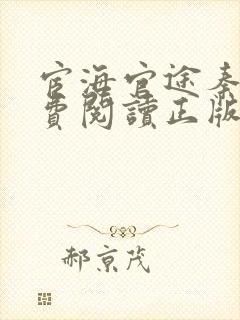 宦海官途秦
費閱讀正版
郝京茂